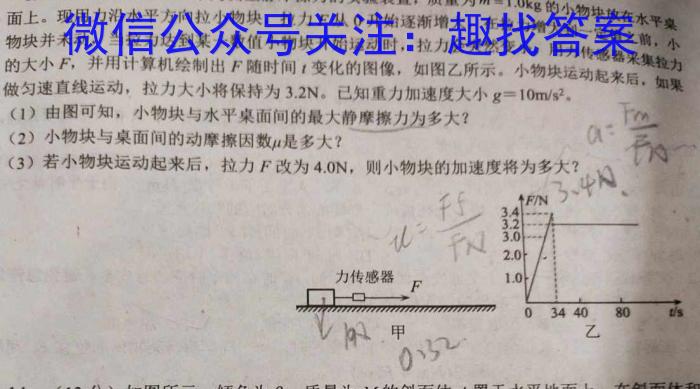 质量为m=1.0kg的小物块放在水平桌
面上。现用力沿水平方向拉小物块
微信公众号关注：趣找答案
的大小F，并用计算机绘制出F随时间t变化的图像，如图乙所示。小物块运动起来后，如果
做匀速直线运动，拉力大小将保持为3.2N。已知重力加速度大小g=10m/s²。
(1)由图可知，小物块与水平桌面间的最大静摩擦力为多大？
(2)小物块与桌面间的动摩擦因数μ是多大？
(3)若小物块运动起来后，拉力F改为4.0N，则小物块的加速度将为多大？
3.4N
u=Ff/FN
力传感器
F
甲
0.32
F/N
3.4
3.2
3.0
2.0
1.0
0 34 40 80 t/s
乙